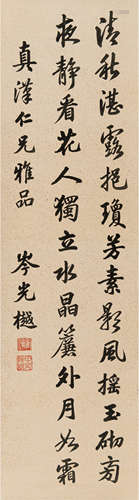 清秋湛露挹瓊芳素影風搖玉砌旁
夜靜看花人獨立水晶簾外月如霜
真漢仁兄雅品
岑光樾